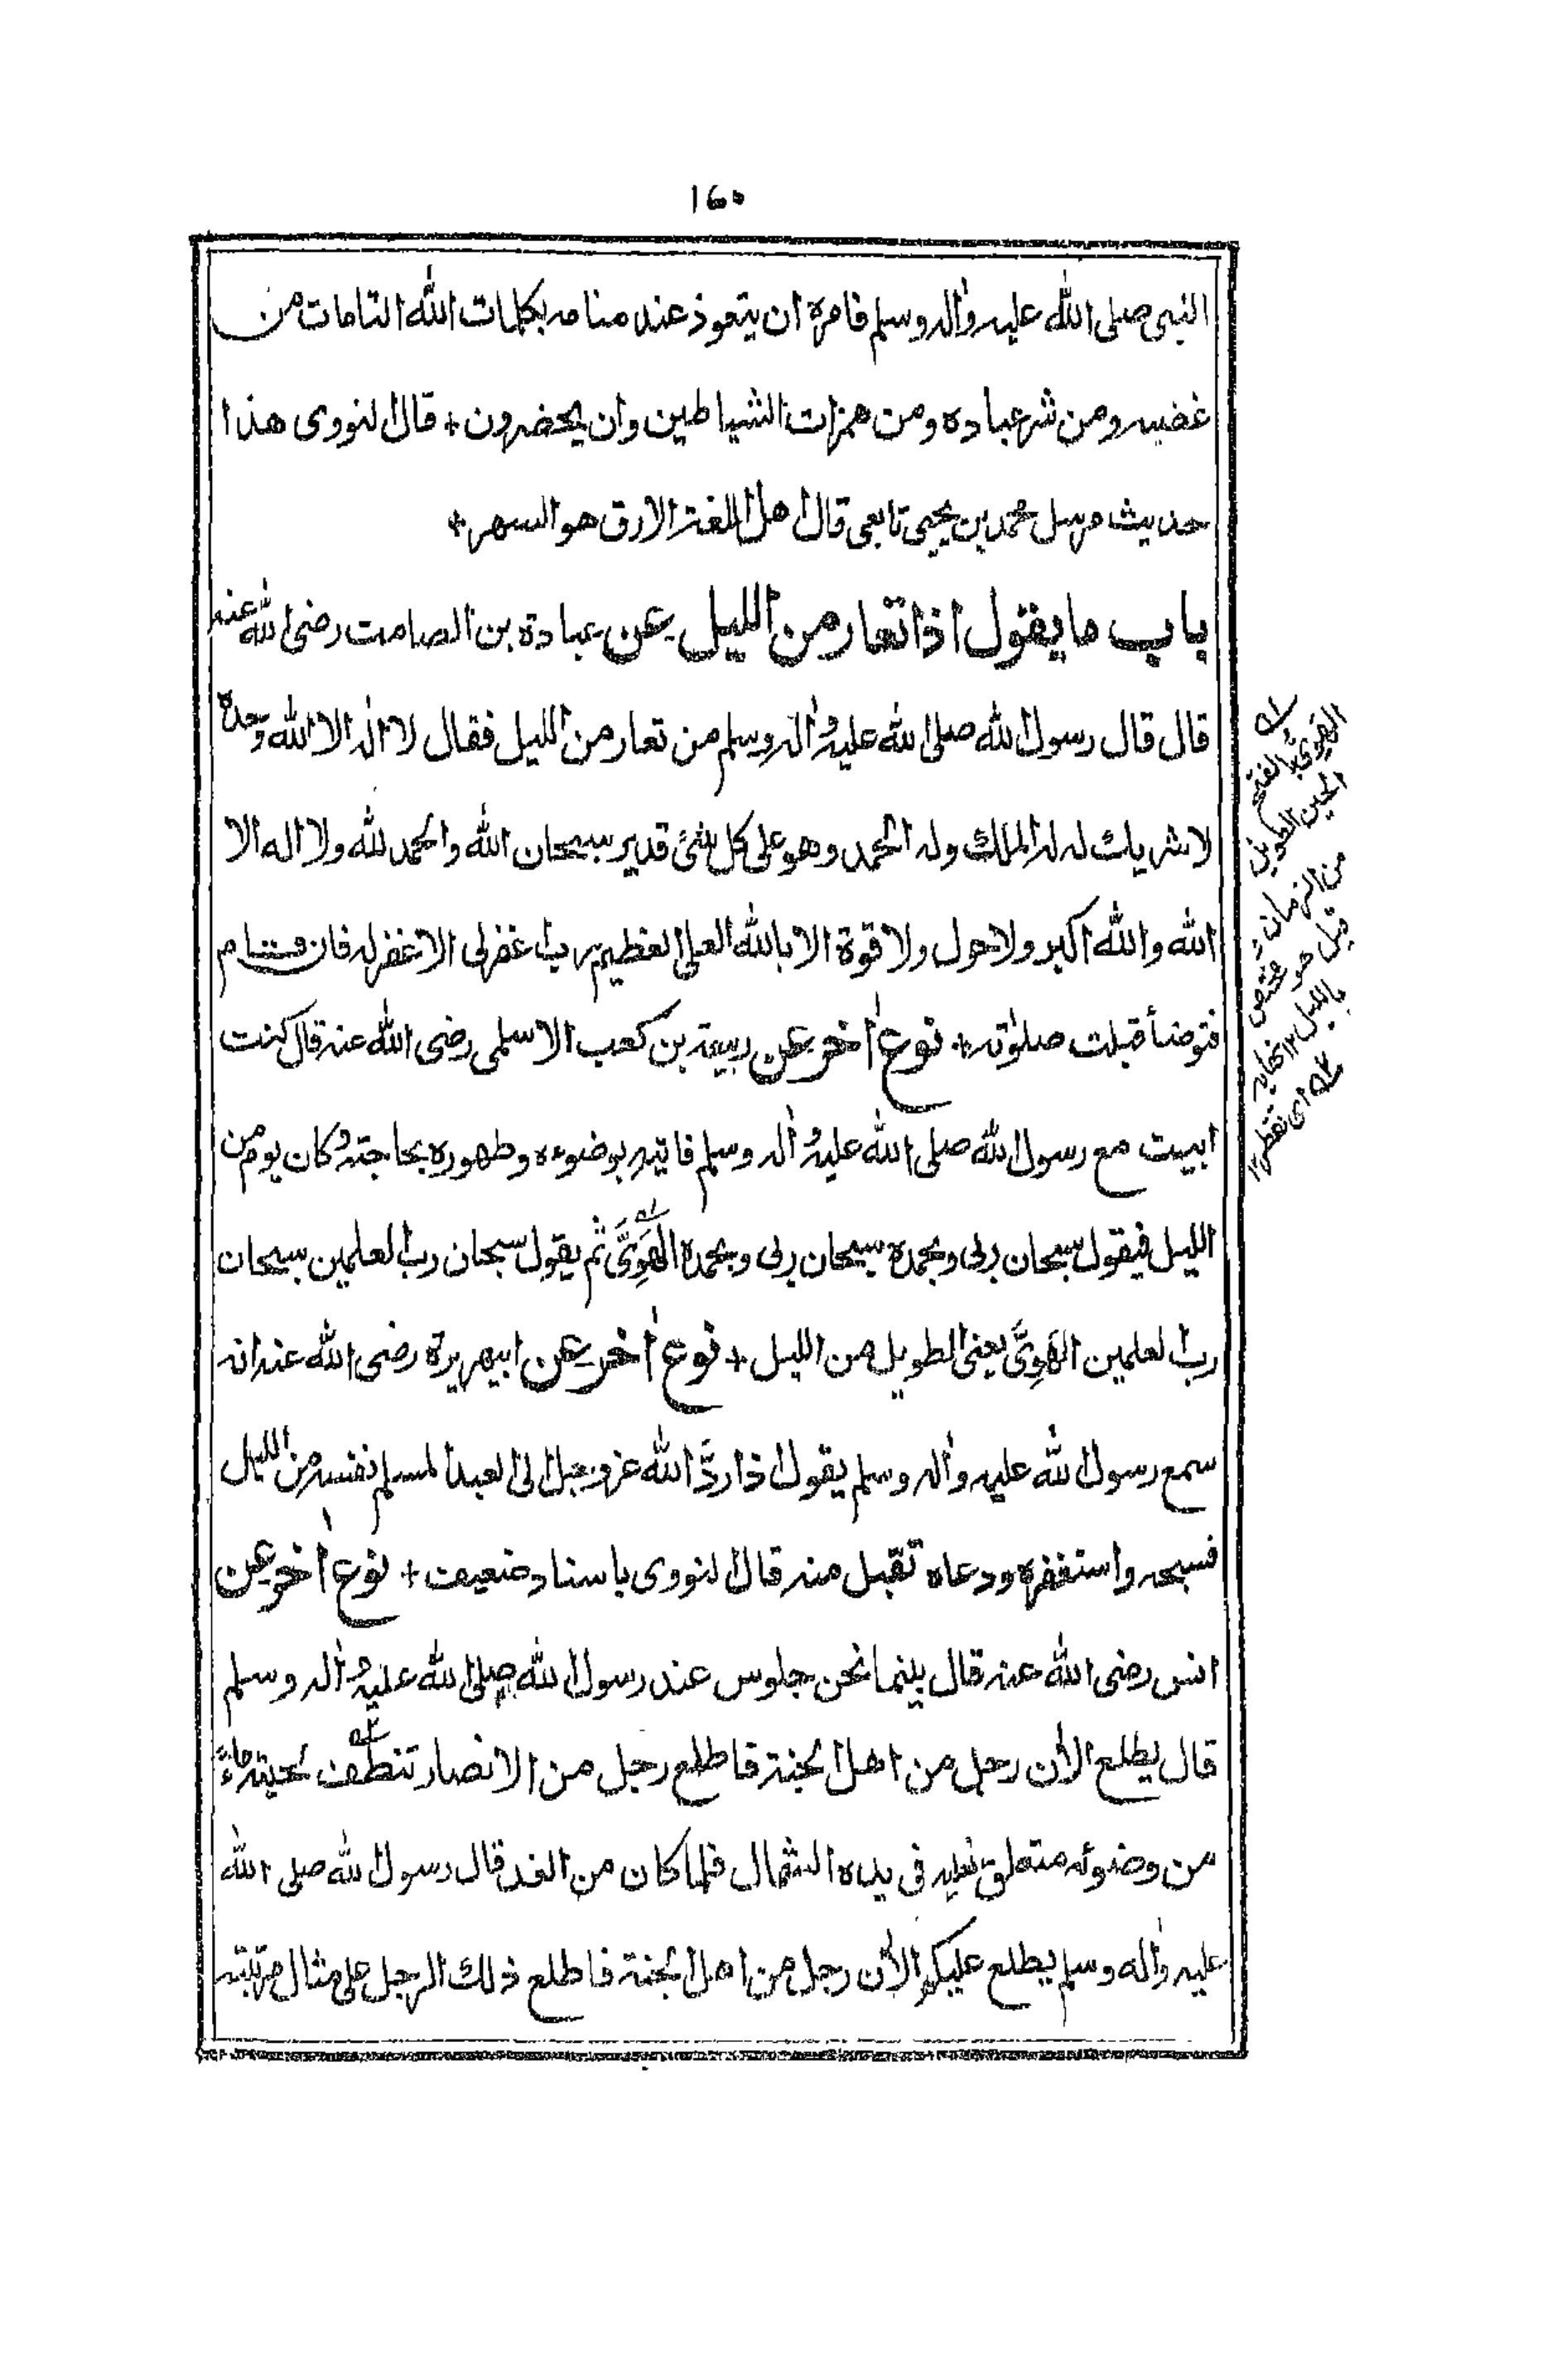 ١٦٠
النبى صلى الله عليه وٰاله وسلم فامره ان يتعوذ عند منامه بكلمات الله التامات من
غضبه ومن شر عباده ومن همزات الشياطين وان يحضرون + قال لنووى هذا
حديث مرسل محمد بن يحيى تابعى قال اهل اللغة الارق هو السهر +
باب ما يقول اذا تعار من الليل عن عبادة بن الصامت رضى الله عنه
قال قال رسول الله صلى الله عليه وٰاله وسلم من تعار من الليل فقال لا اله الا الله وحده
لا شريك له له الملك وله الحمد وهو على كل شئ قدير سبحان الله والحمد لله ولا اله الا
الله والله اكبر ولا حول ولا قوة الا بالله العلى العظيم رب اغفر لى الا غفر له فان قام
فتوضأ قبلت صلوٰته + نوع اٰخر عن ربيعة بن كعب الاسلمى رضى الله عنه قال كنت
ابيت مع رسول الله صلى الله عليه وٰاله وسلم فاتيه بوضوءه وطهوره بحاجته وكان يوم من
الليل فيقول سبحان ربى وبحمده سبحان ربى وبحمده الهَوِىَّ ثم يقول سبحان رب العلمين سبحان
رب العلمين الهَوِىَّ يعنى الطويل من الليل + نوع اٰخر عن ابيهريرة رضى الله عنه انه
سمع رسول الله عليه وٰاله وسلم يقول اذا ردَّ الله عز وجل الى العبد المسلم نفسه من الليل
فسبحه واستغفره ودعاه تقبل منه قال لنووى باسناد ضعيف + نوع اٰخر عن
انس رضى الله عنه قال بينما نحن جلوس عند رسول الله صلى الله عليه وٰاله وسلم
قال يطلع الاٰن رجل من اهل الجنة فاطلع رجل من الانصار تنطف لحيته ماءً
من وضوئه متعلق نعليه فى يده الشمال فلما كان من الغد قال رسول الله صلى الله
عليه وٰاله وسلم يطلع عليكم الاٰن رجل من اهل الجنة فاطلع ذلك الرجل على مثال مرتبته
الهَوِىّ بالفتح
الحين الطويل
من الزمان و
قيل هو مختص
بالليل ١٢ نهايه
اى تقطر ١٢